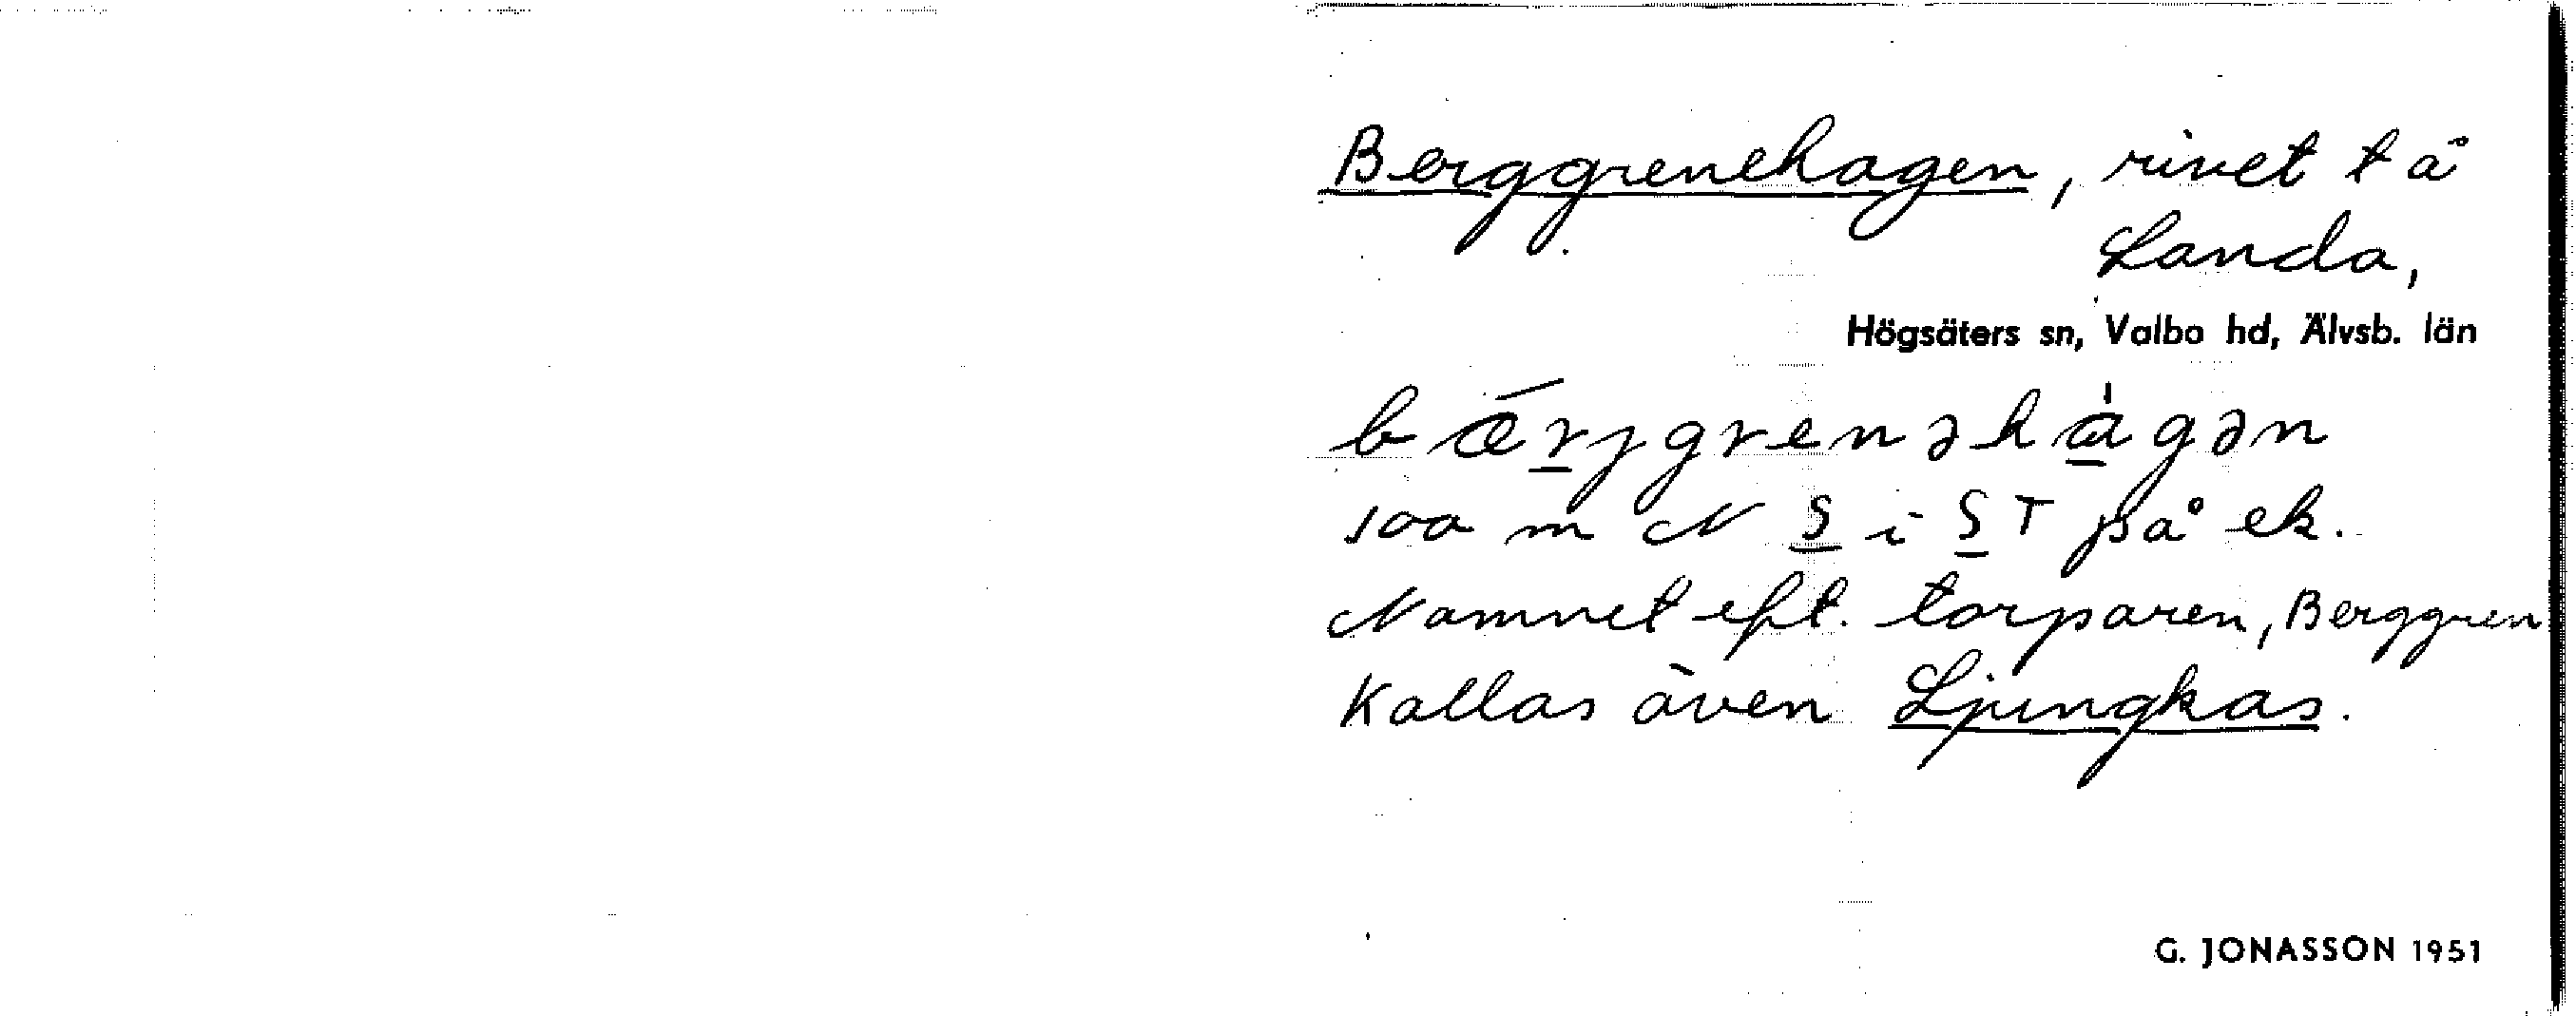 Berggrenehagen, rivet tå
Landa,
Högsäters sn, Valbo hd, Älvsb. län
bǽrjgrenəhàgən
100 m N S i ST på ek.
Namnet eft. torparen, Berggren
Kallas även Ljungkas.
G. JONASSON 1951